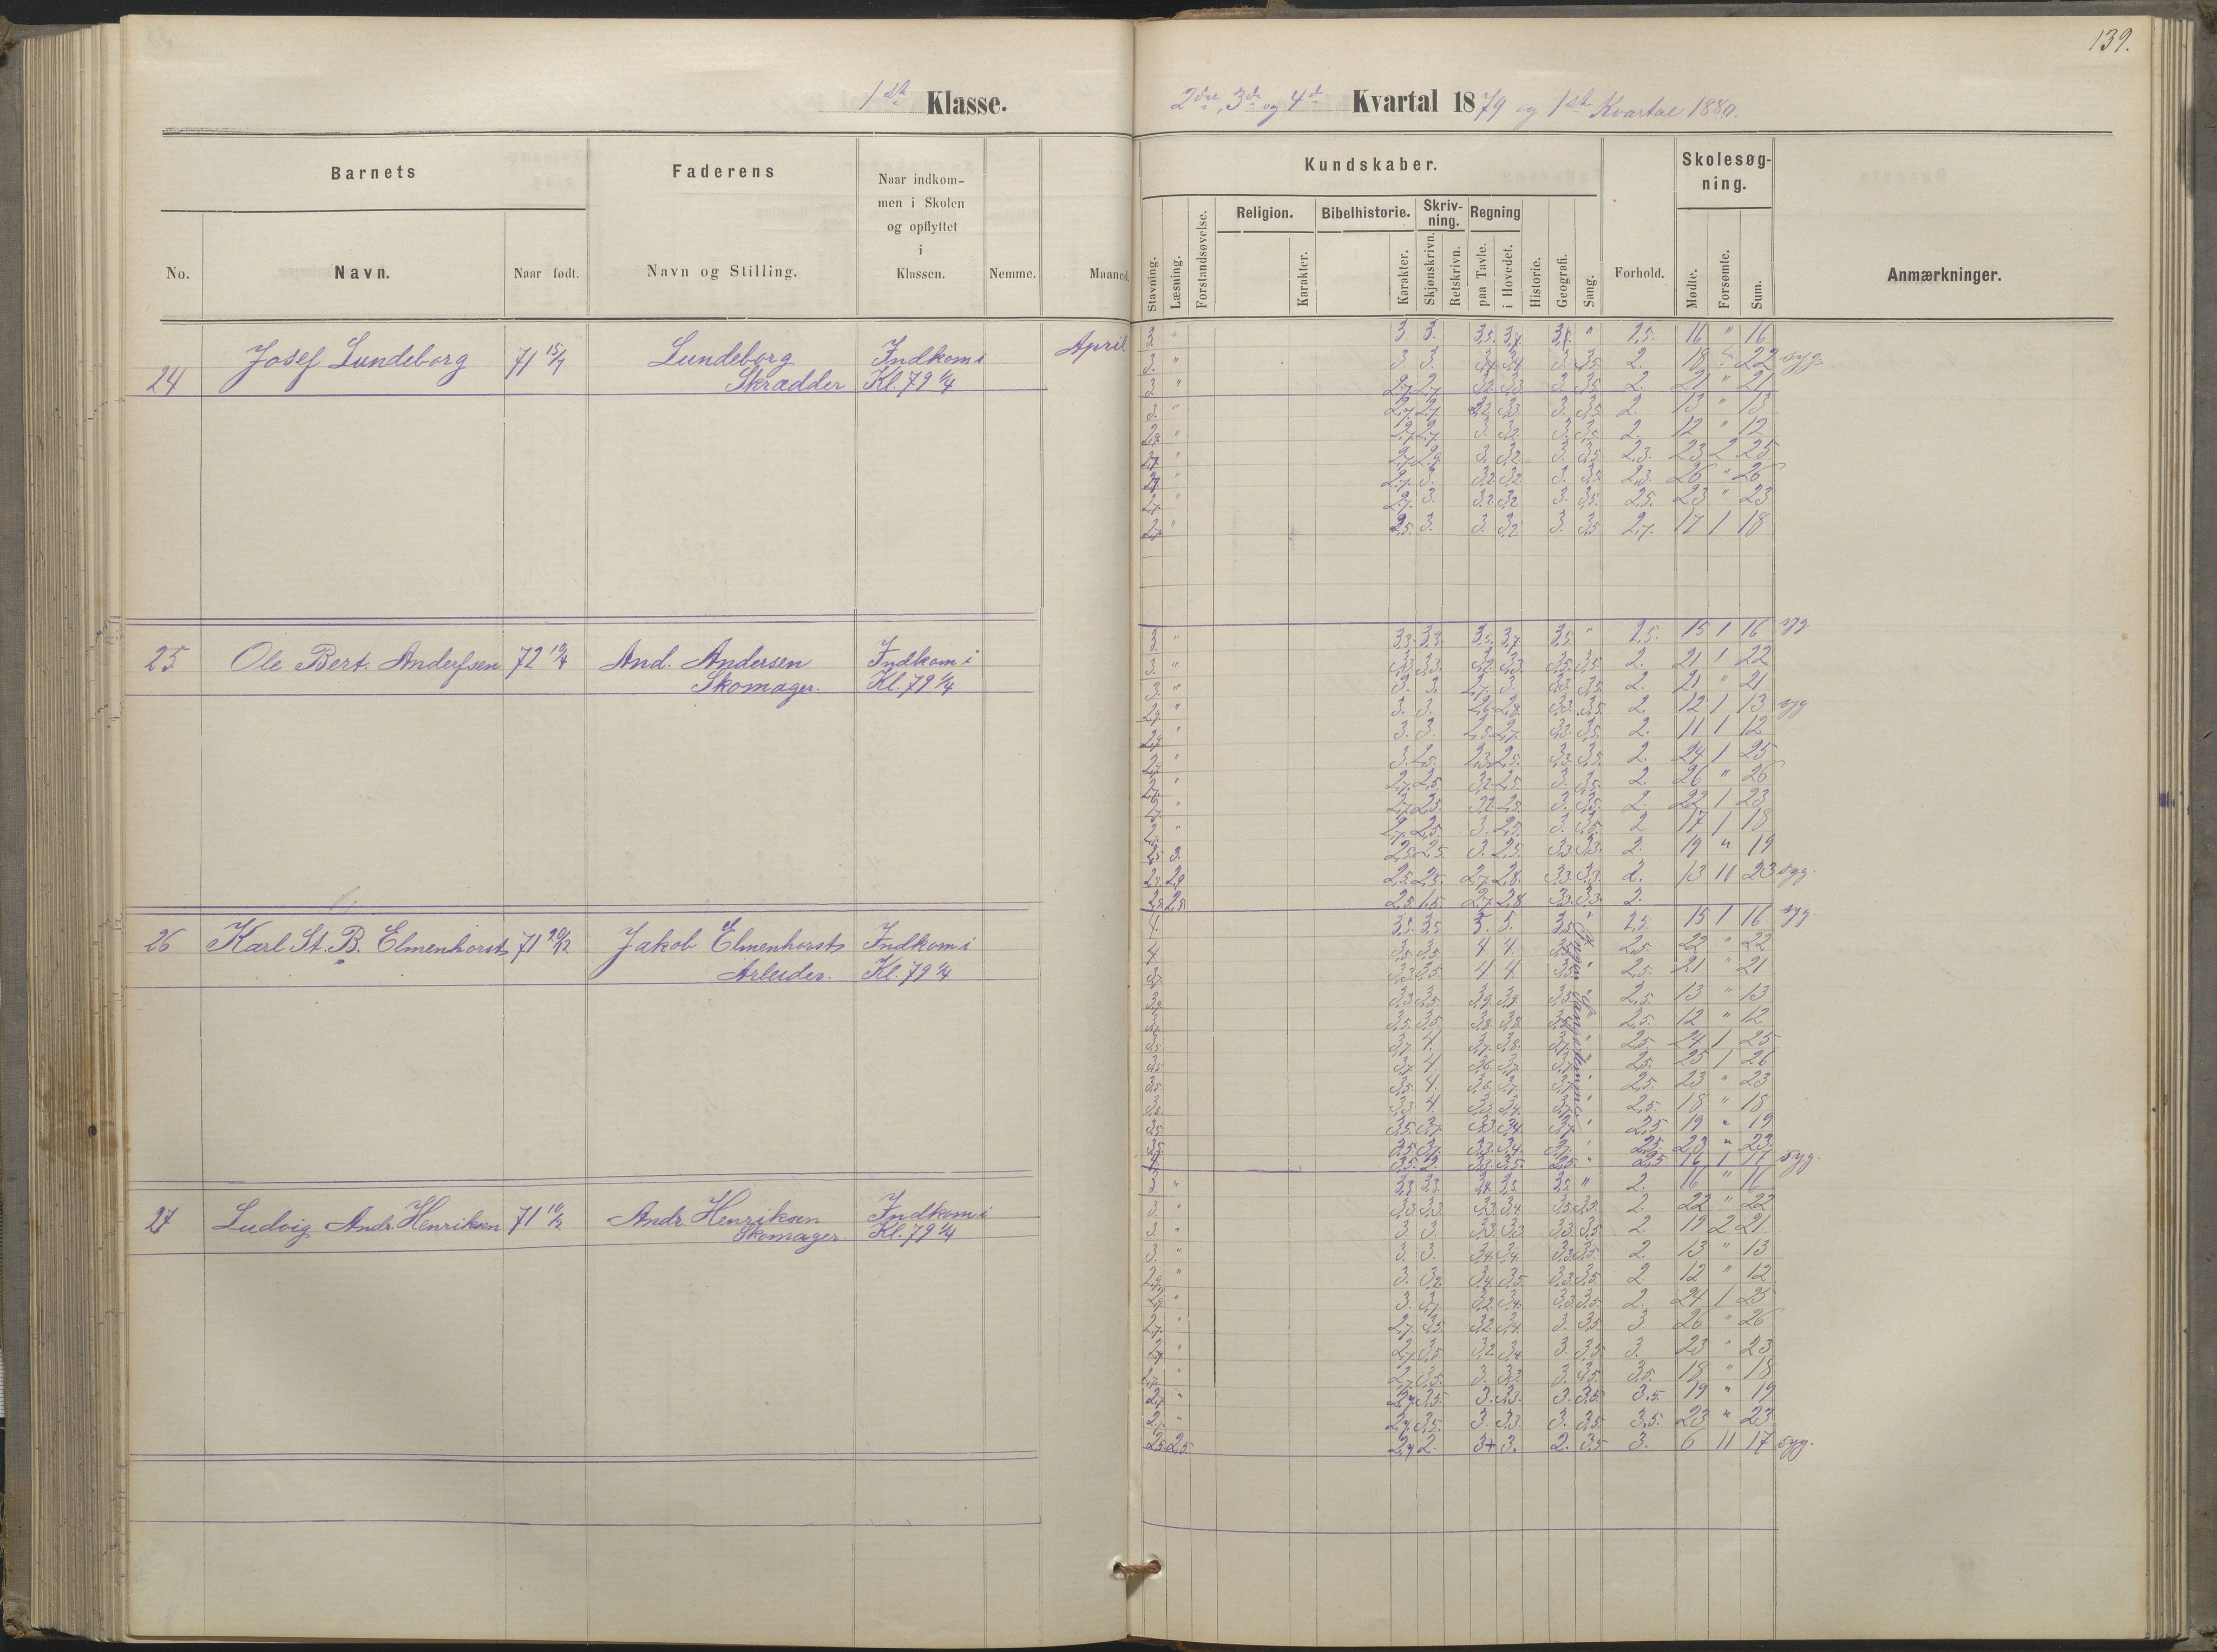 139.
1ste Klasse.
2det, 3de og 4de Kvartal 1879 og 1ste Kvartal 1880.
Barnets
Faderens
Naar indkom-
men i Skolen
og opflyttet
i
Klassen.
Nemme.
Maaned.
No.
Navn.
Naar født.
Navn og Stilling.
Kundskaber.
Skolesøg-
ning.
Religion.
Bibelhistorie.
Skriv-
ning.
Regning
Stavning.
Læsning.
Forstandsøvelse.
Karakter.
Karakter.
Skjønskrivn.
Retskrivn.
paa Tavle.
i Hovedet.
Historie.
Geografi.
Sang.
Forhold.
Mødte.
Forsømte.
Sum.
Anmærkninger.
24 Josef Lundeborg 71 15/7 Lundeborg Indkom i April
Skrædder Kl. 79 1/4
3. " 3. 3. 3,5. 3,7 " 1,5. 16 " 16
3. " 3. 3. 3,4 3,4 3. 3,5. 2. 18 22 syg
3. " 2,7. 2,7. 3,2. 3,3. 3. 3,5. 2. 21 " 21
3. " 2,7. 2,7. 3,3. 3. 3,5. 2. 13 " 13
" 2,7. 2,7. 3. 3,2. 3. 3,5. 2. 12 " 12
" 2,7. 2,9 3. 3,2 3. 3,5 2,3. 23 2 25
" 2,7. 3. 3,2 3,2 3. 3,5 2,3. 26 " 26
2,7. " 2,7. 3. 3,2 3,2 3. 3,5. 2,5. 23 " 23
2,7. " 2,5. 3. 3. 3,2 3. 3,5 2,7. 17 1 18
25 Ole Bert. Andersen 72 19/4 And. Andersen Indkom i
Skomager. Kl. 79 1/4
3. " 3,3. 3,3. 3,5. 3,7 3,5. " 1,5. 15 1 16 syg
3. " 3,3. 3,3. 3,2. 3,3 3,5. 3,5. 2. 21 1 22
3. " 3. 3. 2,7. 3. 3,3. 3,5. 2. 21 " 21
2,9. " 3. 3. 2,6. 2,8. 3,3. 3,5. 2. 12 1 13 syg
2,9. " 3. 3. 2,5. 2,7. 3,3. 3,5. 2. 11 1 12
2,7. " 3. 2,5. 2,3. 2,5. 3,3. 3,5. 2. 24 1 25
2,7. " 2,7. 2,5. 3,2. 2,5. 3. 3,5. 2. 26 " 26
2,7. " 2,7. 2,5. 3,2 2,5. 3. 3,5. 2. 22 1 23
2,7. " 2,7. 2,5. 3. 2,5. 3. 3,5. 2 17 1 18
2,5 3. 2,5. 2,5. 3. 2,5. 3,3. 3,3. 2. 19 " 19
2,5. 2,9 2,5. 2,5. 2,7. 2,8. 3,3. 3,3. 2. 13 11 23 syg.
2,5. 2,5. 2,5. 1,5 2,7. 2,8 3,3. 3,3. 2.
26 Karl St. B. Elmenhorst 71 20/12 Jakob Elmenhorst Indkom i
Arbeider. Kl. 79 1/4
Ingen Sangstemme
4. 3,5. 3,5 5. 5. 3,5 2,5 15 1 16 syg.
4. 3,5. 3,5. 4 4. 3,5. 2,5. 22 " 22
3,7. 3,3. 3,5. 4 4. 3,5. 2,5. 21 " 21
3,7. 3,3. 3,5. 3,9. 3,9. 3,5. 2,5. 13 " 13
3,7. 3,5. 3,5. 3,8. 3,8. 3,5. 2,5. 12 " 12
3,5. 3,7. 4. 3,7. 3,8. 3,7. 2,5. 24 1 25
3,5. 3,7. 4. 3,6. 3,7. 3,7. 2,5. 25 1 26
3,5. 3,5. 4. 3,6. 3,7. 3,7. 2,5. 23 " 23
3,5. 3,3. 4. 3,3. 3,4. 3,7. 2,5. 18 " 18
3,5. 3,5. 3,7. 3,3. 3,4. 3,7. 2,5. 19 " 19
3,5. 3,5. 3,7. 3,3. 3,4. 2,5. 23 " 23.
3,5. 2. 3,3. 3,5. " 2,5 16 1 17 syg.
27 Ludvig Andr. Henriksen 71 10/12 Andr. Henriksen Indkom i
Skomager. Kl. 79 1/4
3. " 3,3 3,3. 3,4. 3,5. 3,5. " 2. 16 " 16
3. " 3,3. 3,3. 3,3. 3,4. 3,5. 3,5. 2. 22 " 22
3. " 3. 3. 3,3. 3,3 3,3. 3,5. 2. 19 2 21
3. " 3. 3. 3,4. 3,4. 3,3. 3,5. 2. 13 " 13
2,9. " 3. 3,2. 3,4. 3,5. 3,3. 3,5. 2. 12 " 12
2,9. " 3. 3,7. 3,2. 3,4. 3,3. 3,5. 2. 24 1 25
2,7. " 2,7. 3,5. 3,2. 3,4. 3. 3,5. 3 26 " 26
2,7. " 2,7. 3,5. 3,2 3,4 3. 3,5 3. 23 " 23
2,7. " 2,7. 3,5. 3. 3,3. 3. 3,5. 3,5. 18 " 18
2,7. " 2,7. 3,5. 3. 3,3. 3. 3,5. 3,5. 19 " 19
2,7. " 2,7. 3,5. 3. 3,3. 3. 3,5. 3,5. 23 " 23
2,5. 2,5. 2,7 2. 3+ 3. 2. 3,5 3. 6 11 17 syg.